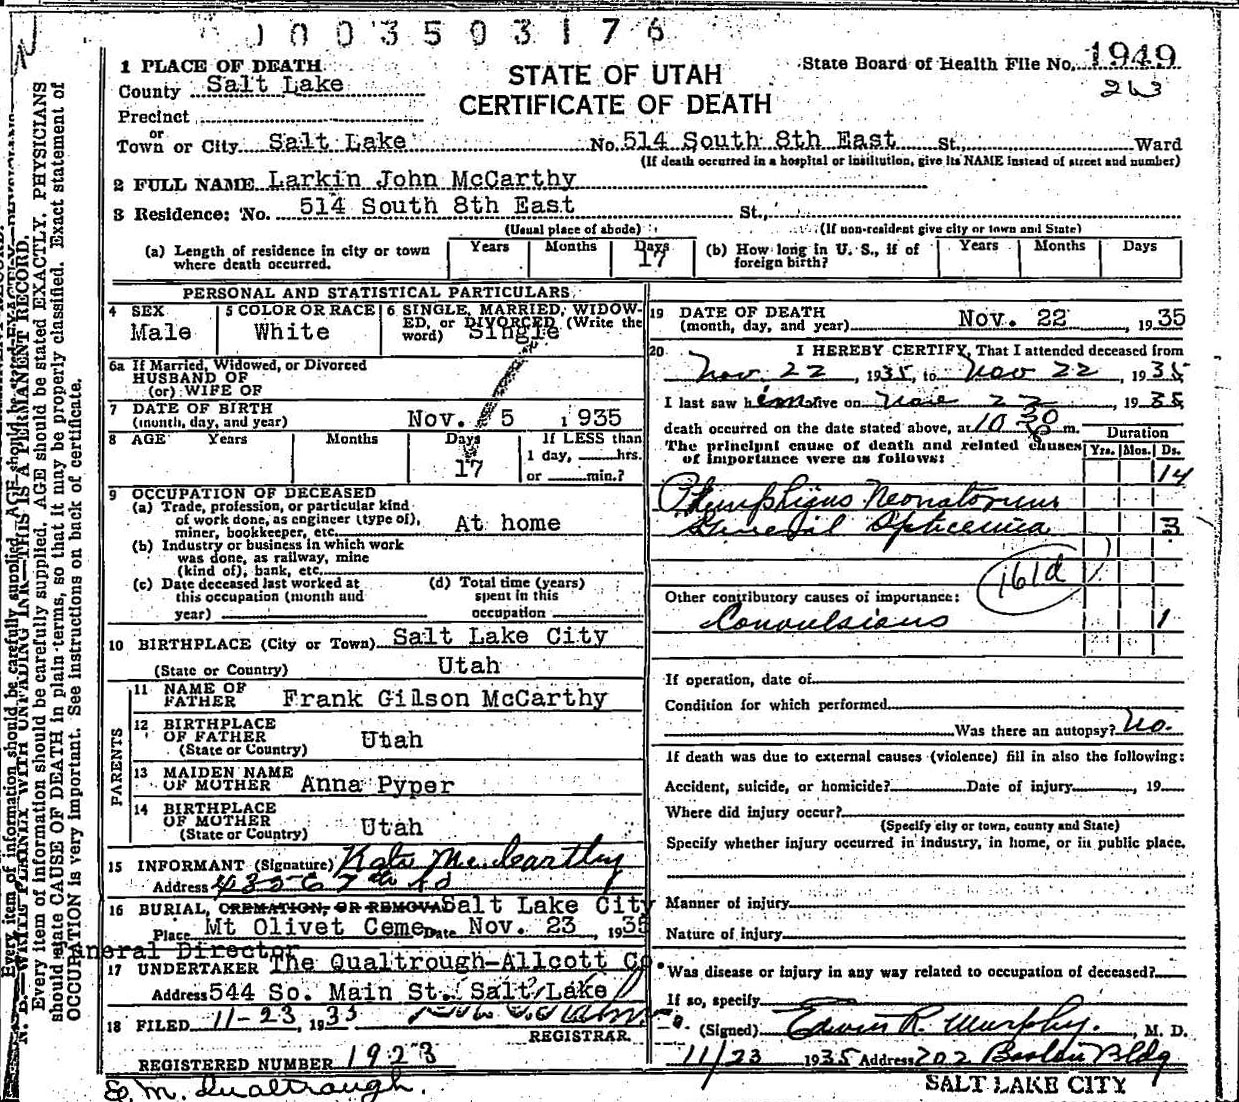 1003503176
1 PLACE OF DEATH
County Salt Lake
Precinct
or
Town or City Salt Lake No. 514 South 8th East St., Ward
STATE OF UTAH
CERTIFICATE OF DEATH
State Board of Health File No. 1949
263
(If death occurred in a hospital or institution, give its NAME instead of street and number)
2 FULL NAME Larkin John McCarthy
3 Residence: No. 514 South 8th East St.,
(Usual place of abode) (If non-resident give city or town and State)
(a) Length of residence in city or town where death occurred. Years Months Days 17
(b) How long in U. S., if of foreign birth? Years Months Days
PERSONAL AND STATISTICAL PARTICULARS
4 SEX Male
5 COLOR OR RACE White
6 SINGLE, MARRIED, WIDOWED, or DIVORCED (Write the word) Single
6a If Married, Widowed, or Divorced
HUSBAND OF
(or) WIFE OF
7 DATE OF BIRTH
(month, day, and year) Nov. 5, 1935
8 AGE Years Months Days 17
If LESS than
1 day, hrs.
or min.?
9 OCCUPATION OF DECEASED
(a) Trade, profession, or particular kind
of work done, as engineer (type of),
miner, bookkeeper, etc. At home
(b) Industry or business in which work
was done, as railway, mine
(kind of), bank, etc.
(c) Date deceased last worked at
this occupation (month and
year)
(d) Total time (years)
spent in this
occupation
10 BIRTHPLACE (City or Town) Salt Lake City
(State or Country) Utah
PARENTS
11 NAME OF
FATHER Frank Gilson McCarthy
12 BIRTHPLACE
OF FATHER
(State or Country) Utah
13 MAIDEN NAME
OF MOTHER Anna Pyper
14 BIRTHPLACE
OF MOTHER
(State or Country) Utah
15 INFORMANT (Signature) Kate McCarthy
Address
16 BURIAL, CREMATION, OR REMOVAL Salt Lake City
Place Mt Olivet Ceme Date Nov. 23, 1935
neral Director
17 UNDERTAKER The Qualtrough-Allcott Co.
Address 544 So. Main St. Salt Lake
18 FILED 11-23, 1935
REGISTRAR.
REGISTERED NUMBER 1923
E. M. Qualtrough.
19 DATE OF DEATH
(month, day, and year) Nov. 22, 1935
20 I HEREBY CERTIFY, That I attended deceased from
Nov. 22, 1935, to Nov 22, 1935
I last saw him alive on Nov 22, 1935
death occurred on the date stated above, at 10 30 m.
The principal cause of death and related causes
of importance were as follows:
Duration
Yrs. Mos. Ds.
14
Phemphigus Neonatorum
General Septicemia 3
161d
Other contributory causes of importance:
Convulsions 1
If operation, date of
Condition for which performed
Was there an autopsy? No.
If death was due to external causes (violence) fill in also the following:
Accident, suicide, or homicide? Date of injury, 19
Where did injury occur?
(Specify city or town, county and State)
Specify whether injury occurred in industry, in home, or in public place.
Manner of injury
Nature of injury
Was disease or injury in any way related to occupation of deceased?
If so, specify
(Signed) Edwin R. Murphy, M. D.
11/23 1935 Address 202 Boston Bldg
SALT LAKE CITY
N. B.—WRITE PLAINLY WITH UNFADING INK—THIS IS A PERMANENT RECORD.
Every item of information should be carefully supplied. AGE should be stated EXACTLY. PHYSICIANS
should state CAUSE OF DEATH in plain terms, so that it may be properly classified. Exact statement of
OCCUPATION is very important. See instructions on back of certificate.